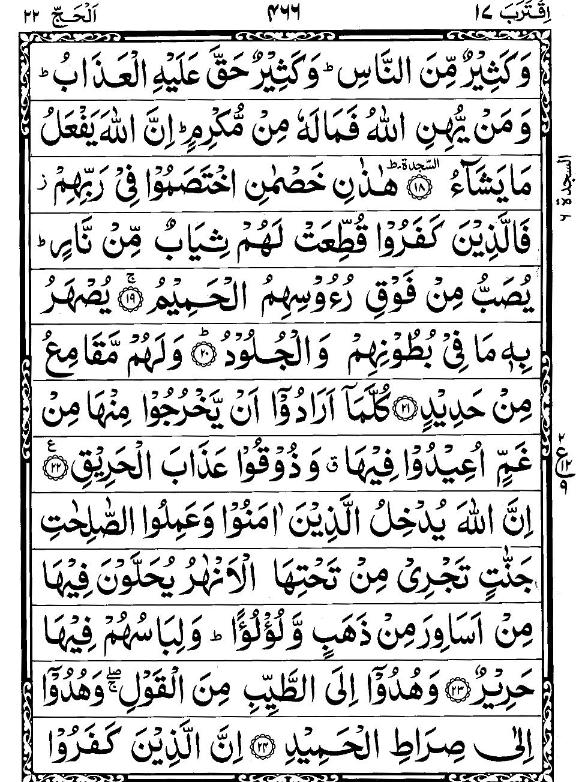 اِقْتَرَبَ ١٧ ٤٦٦ اَلْحَجّ ٢٢
وَكَثِيْرٌ مِّنَ النَّاسِ ؕ وَكَثِيْرٌ حَقَّ عَلَيْهِ الْعَذَابُ ؕ
وَمَنْ يُّهِنِ اللّٰهُ فَمَا لَهٗ مِنْ مُّكْرِمٍ ؕ اِنَّ اللّٰهَ يَفْعَلُ
مَا يَشَآءُ ۩ السجدة ؕ ﴿١٨﴾ هٰذٰنِ خَصْمٰنِ اخْتَصَمُوْا فِيْ رَبِّهِمْ ز
فَالَّذِيْنَ كَفَرُوْا قُطِّعَتْ لَهُمْ ثِيَابٌ مِّنْ نَّارٍ ؕ
يُصَبُّ مِنْ فَوْقِ رُءُوْسِهِمُ الْحَمِيْمُ ۚ ﴿١٩﴾ يُصْهَرُ
بِهٖ مَا فِيْ بُطُوْنِهِمْ وَالْجُلُوْدُ ؕ ﴿٢٠﴾ وَلَهُمْ مَّقَامِعُ
مِنْ حَدِيْدٍ ﴿٢١﴾ كُلَّمَآ اَرَادُوْٓا اَنْ يَّخْرُجُوْا مِنْهَا مِنْ
غَمٍّ اُعِيْدُوْا فِيْهَا ق وَذُوْقُوْا عَذَابَ الْحَرِيْقِ ع ﴿٢٢﴾
اِنَّ اللّٰهَ يُدْخِلُ الَّذِيْنَ اٰمَنُوْا وَعَمِلُوا الصّٰلِحٰتِ
جَنّٰتٍ تَجْرِيْ مِنْ تَحْتِهَا الْاَنْهٰرُ يُحَلَّوْنَ فِيْهَا
مِنْ اَسَاوِرَ مِنْ ذَهَبٍ وَّلُؤْلُؤًا ؕ وَلِبَاسُهُمْ فِيْهَا
حَرِيْرٌ ﴿٢٣﴾ وَهُدُوْٓا اِلَى الطَّيِّبِ مِنَ الْقَوْلِ ۖۚ وَهُدُوْٓا
اِلٰى صِرَاطِ الْحَمِيْدِ ﴿٢٤﴾ اِنَّ الَّذِيْنَ كَفَرُوْا
السجدة ٦
٢
ع
١٢
٩